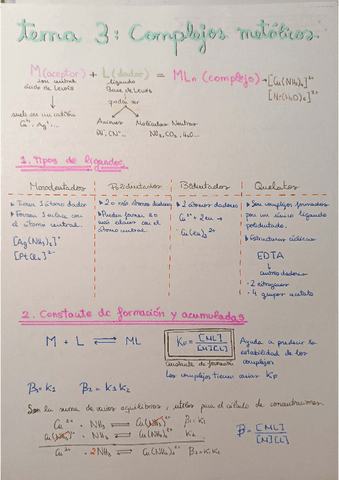 tema 3: Complejos metálicos.
M(aceptor) + L(dador) = MLn (complejo) → [Cu(NH3)4]2+
ion central ligando [Ni(H2O)6]2+
ácido de Lewis Base de Lewis
puede ser
suele ser un catión
Cu2+, Ag+... Aniones Moléculas Neutras
CN-... NH3, H2O...
1. Tipos de ligandos
Monodentados Polidentados Bidentados Quelatos
▸ Tienen 1 átomo dador
▸ Forman 1 enlace con el átomo central.
[Ag(NH3)2]+
▸ 2 o más átomos dadores
▸ Pueden formar 2 o más enlaces con el átomo central.
▸ 2 átomos dadores
Cu2+ + 2en →
Cu(en)2 2+
▸ Son complejos formados por un único ligando polidentado.
▸ Estructuras cíclicas
EDTA
↓
átomos dadores
- 2 nitrógenos
- 4 grupos acetato
2. Constante de formación y acumuladas
M + L ⇌ ML KF = [ML] / [M][L] Ayuda a predecir la estabilidad de los complejos
constante de formación
Los complejos tienen varias KF
β1 = K1 β2 = K1 K2
Son la suma de varios equilibrios, útiles para el cálculo de concentraciones.
Cu2+ + NH3 ⇌ Cu(NH3)2+ β1 = K1
Cu(NH3)2+ + NH3 ⇌ Cu(NH3)2 2+ K2
Cu2+ + 2NH3 ⇌ Cu(NH3)2 2+ β2 = K1 K2
β = [ML] / [M][L]